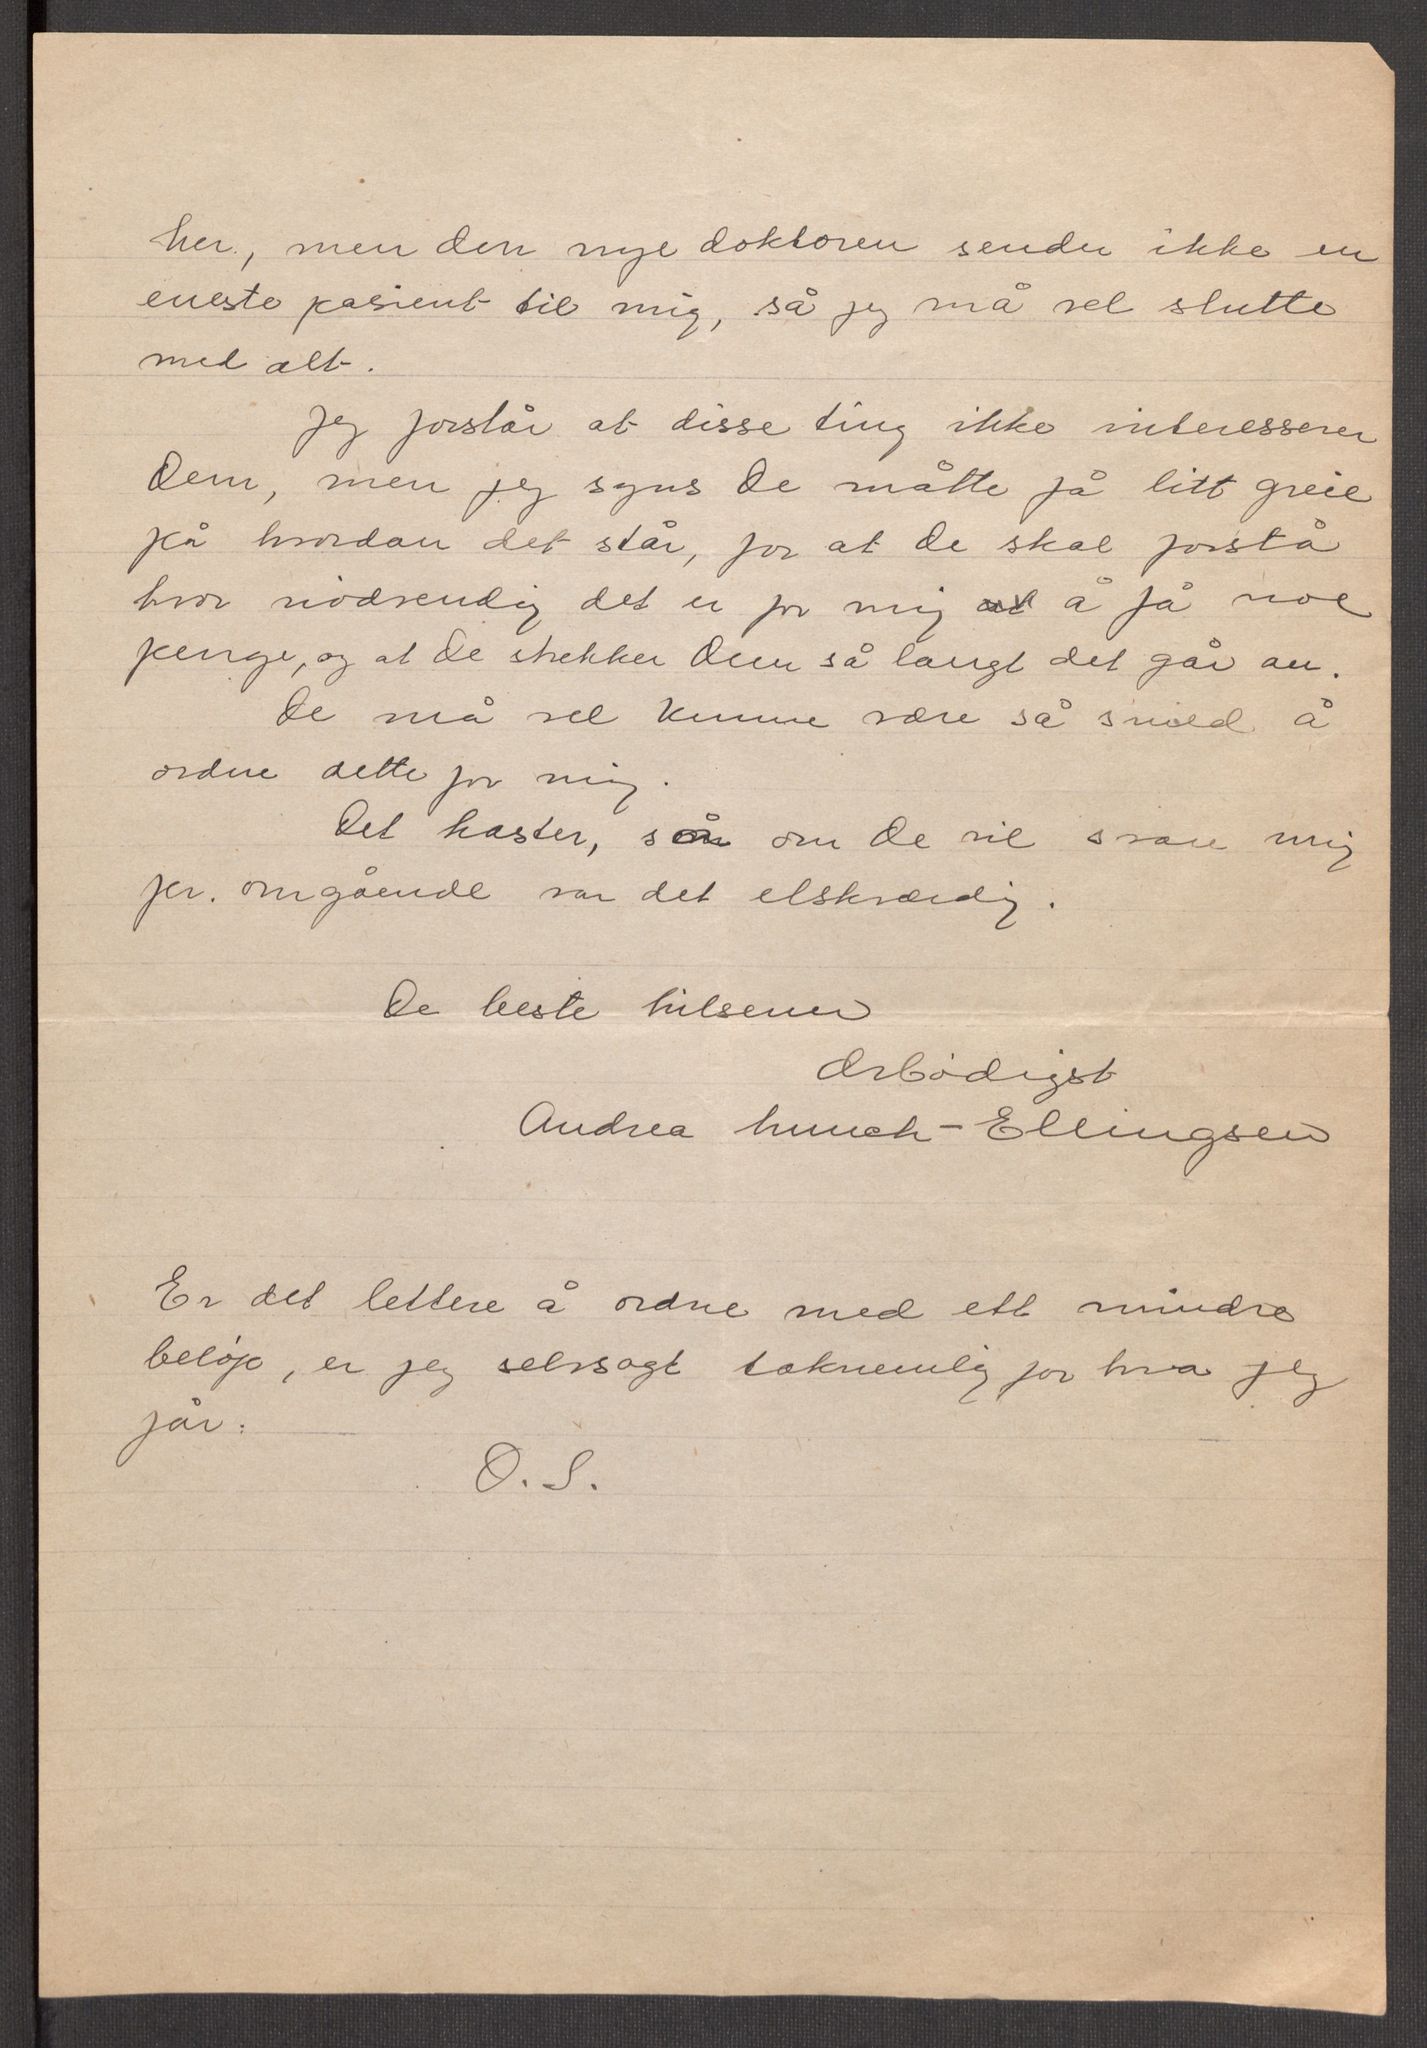 her, men den nye doktoren sender ikke en
eneste pasient til mig, så jeg må vel slutte
med alt.
Jeg forstår at disse ting ikke interesserer
Dem, men jeg syns De måtte få litt greie
på hvordan det står, for at De skal forstå
hvor nödvendig det er for mig å få noe
penge, og at De strekker Dem så langt det går an.
De må vel kunne være så snild å
ordne dette for mig.
Det haster, så om De vil svare mig
pr. omgående var det elskværdig.
De beste hilsener
Ærbödigst
Andrea Munch-Ellingsen
Er det lettere å ordne med ett mindre
beløp, er jeg selvsagt taknemlig for hva jeg
får.
D. S.